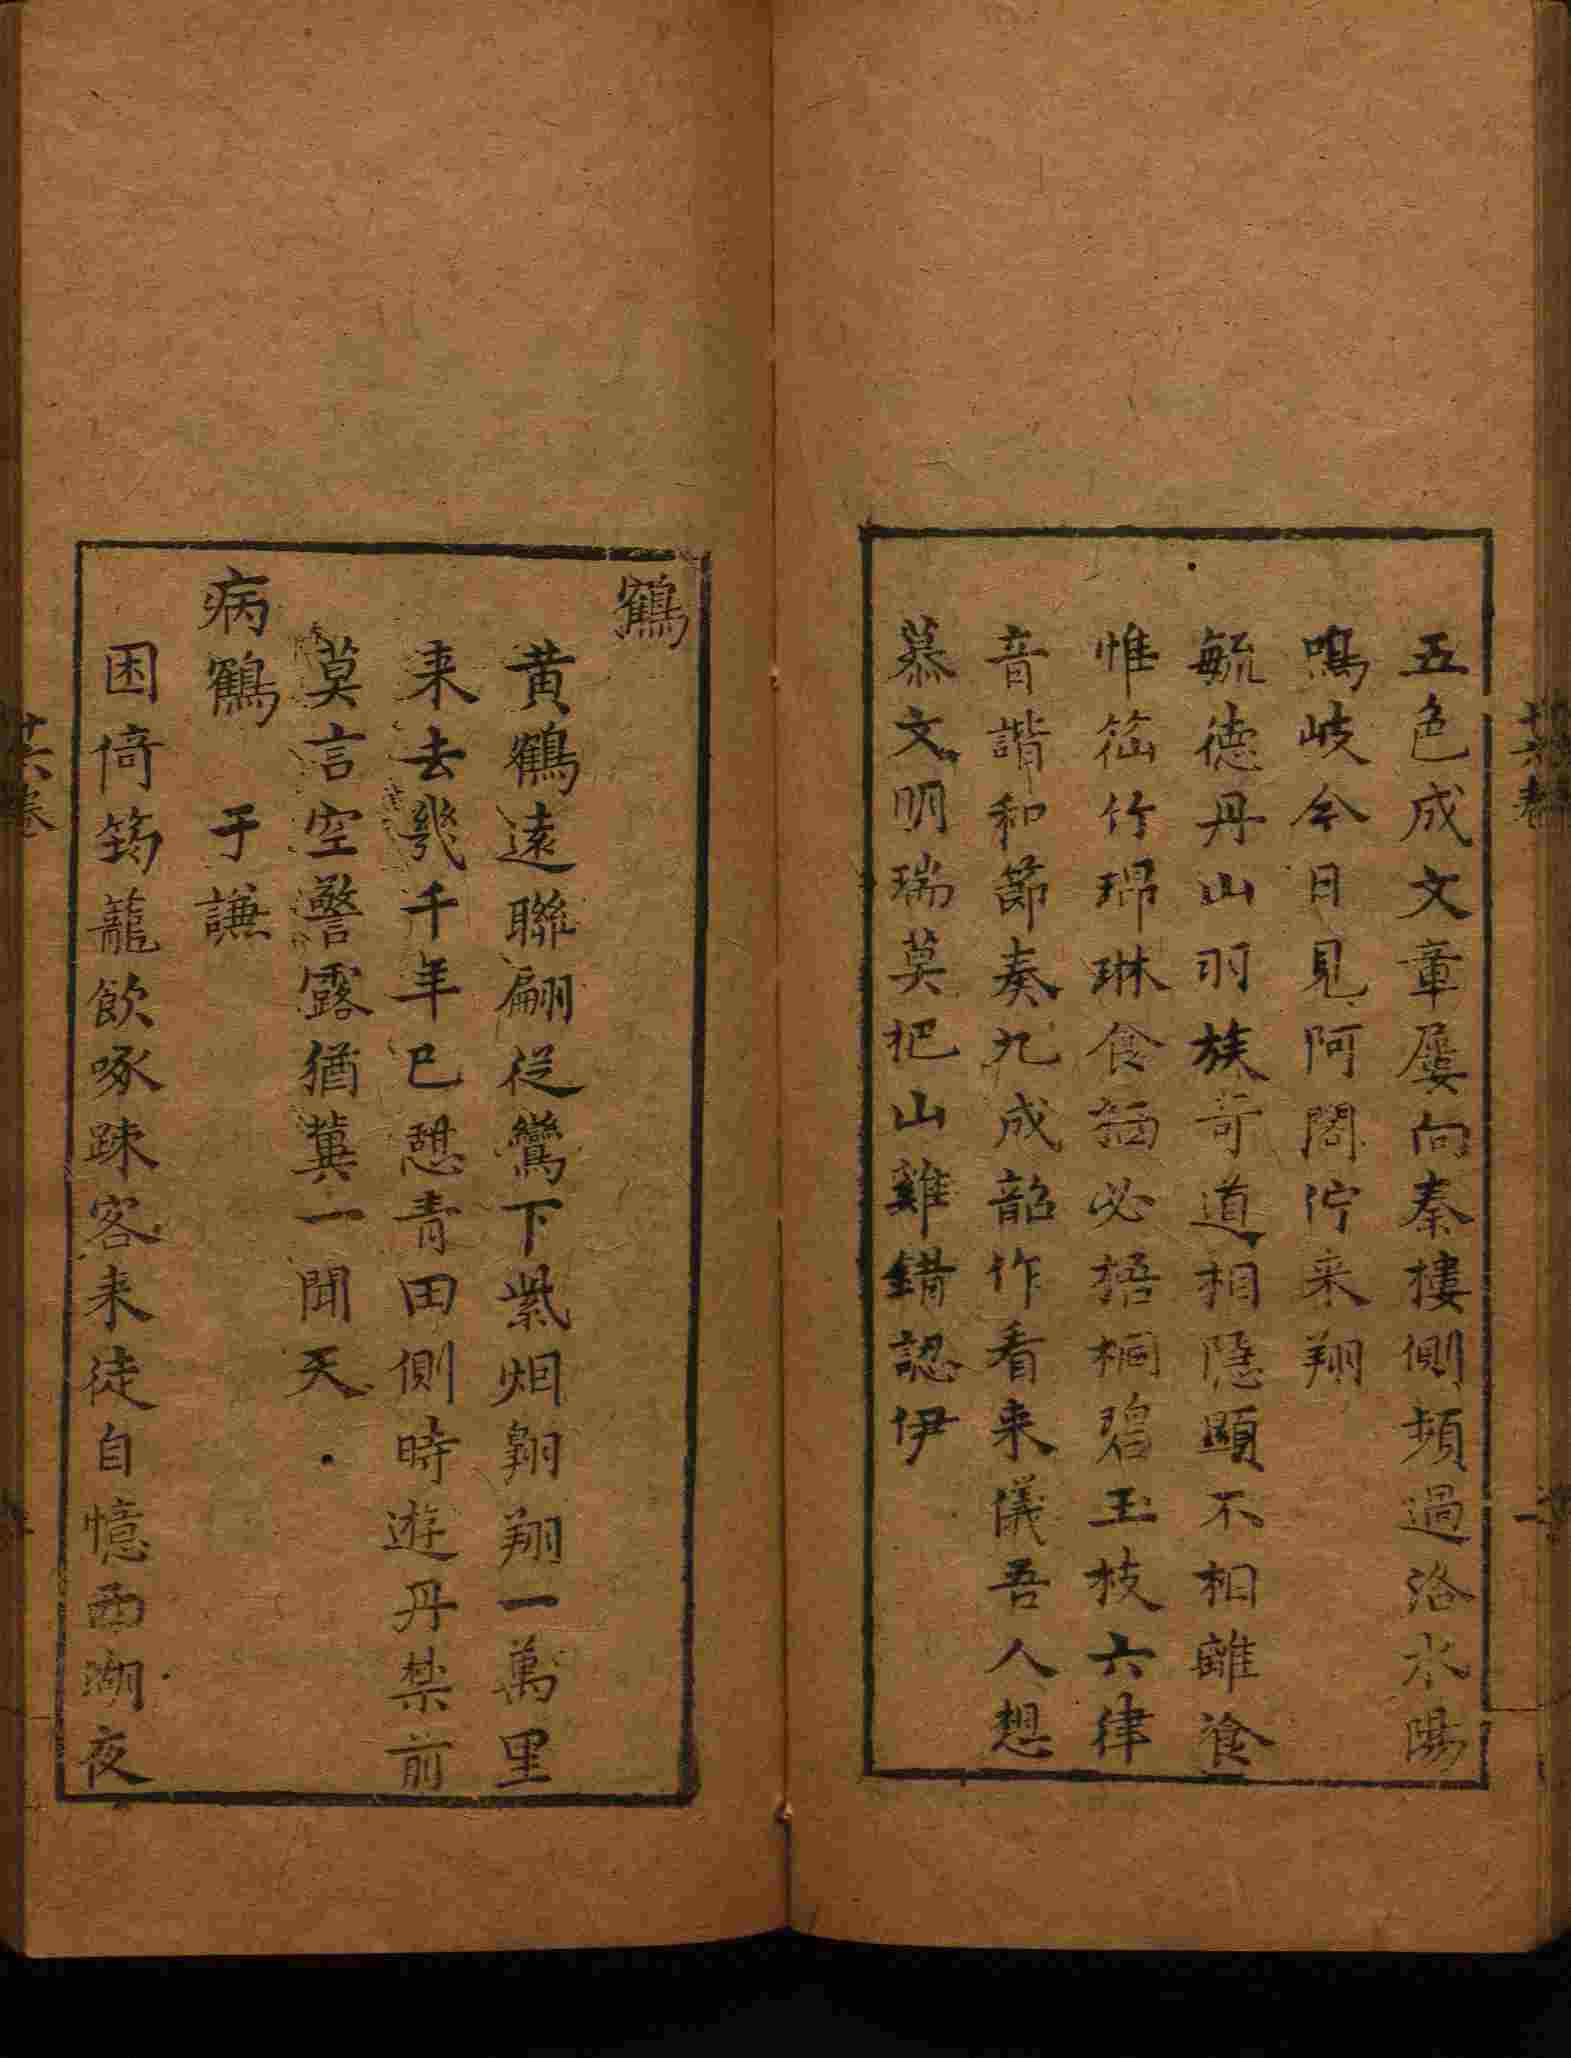 五色成文章屢向秦摟側頻過洛水陽
鳴岐今日見阿閣佇来翔
毓德丹山羽族奇道相隱顯不相離飡
惟筎竹琅琳食宿必梧桐碧玉枝六律
音諧和節奏九成韶作看来儀吾人想
慕文明瑞莫把山雞錯認伊
鶴
黄鶴遠聯翩從鸞下紫烟翱翔一萬里
来去幾千年已憩青田側時遊丹禁前
莫言空警露猶冀一聞天
病鶴 于謙
困倚筠籠飲啄踈客来徒自憶西湖夜
十六卷